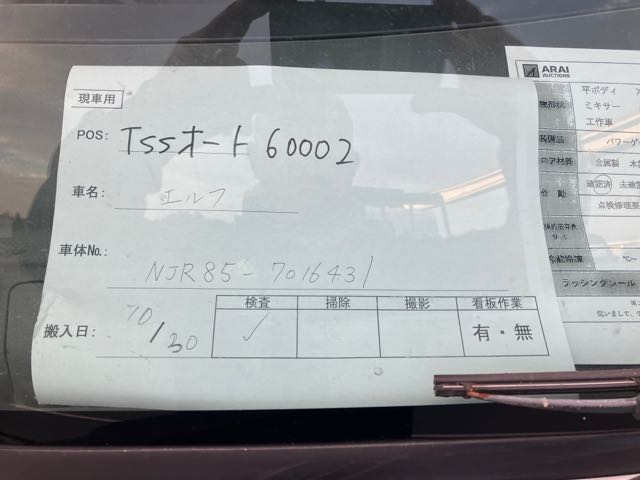 現車用
POS: TSSオート 60002
車名: エルフ
車体No.: NJR85-7016431
搬入日: 10/30
検査 掃除 撮影 看板作業
✓ 有・無
ARAI
AUCTIONS
平ボディ
物形状 ミキサー
工作車
装備品 パワーゲー
ロア材質 金属製 木
作動 確認済 未確
点検修理要
冷蔵冷凍 ℃~
ラッシングレール